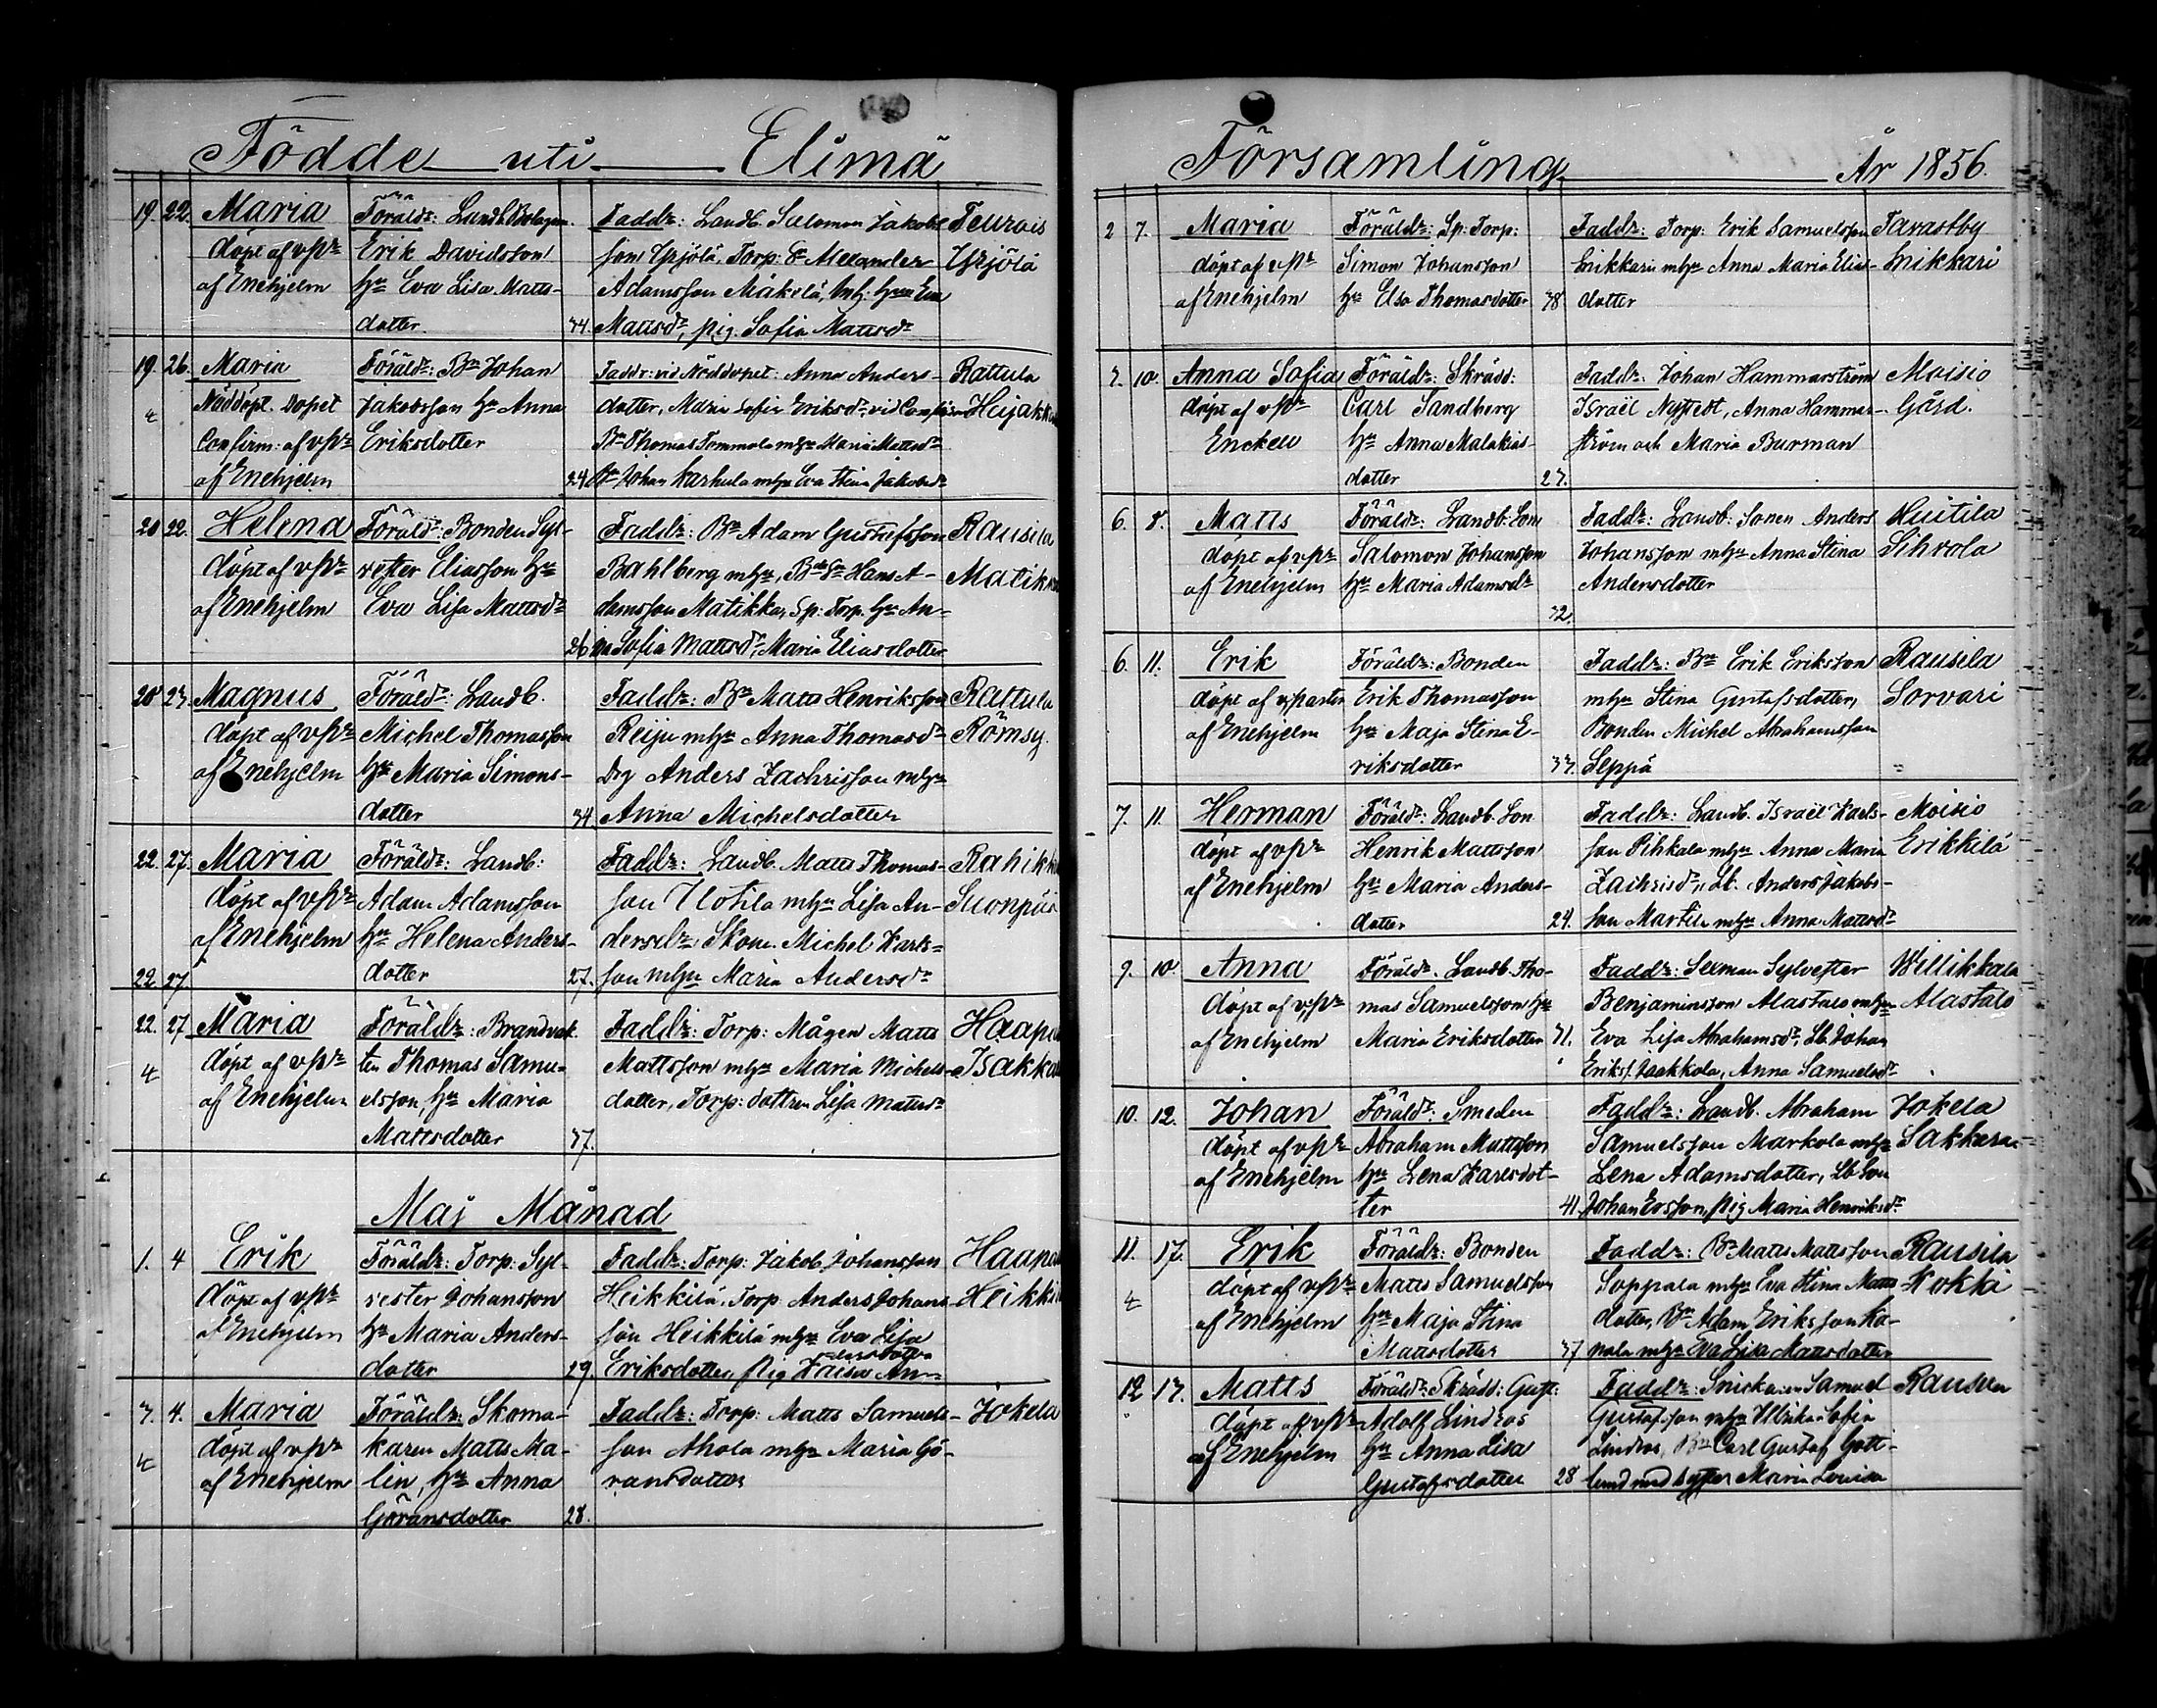 Födde uti Elimä
19. 22. Maria
döpt af vpr
af Enehjelm
Föräldr: Landb. Bolagsm
Erik Davidsson
hu Eva Lisa Matts-
dotter
34.
Faddr: Landb. Salomon Jakobs
son Yrjölä, Torp: Alexander
Adamsson Mäkelä, Eva
Mattsdr, pig. Sofia Mattsdr
Teurois
Yrjölä
19. 26. Maria
Nöddöpt. Dopet
Confirm: af vpr
af Enehjelm
Föräldr: Bn Johan
Jakobsson hu Anna
Eriksdotter
24.
Faddr: vid Nöddopet: Anna Anders-
dotter, Maria Sofia Eriksdr vid
Bn Thomas Tommola mhu Maria Mattsdr
Bn Johan Karhula mhu Eva Stina Jakobsdr
Rattula
20 22. Helena
döpt af vpr
af Enehjelm
Föräldr: Bonden Syl-
vester Eliasson hu
Eva Lisa Mattsdr
26
Faddr: Bn Adam Gustafsson
Bahlberg mhu, Hans A-
damsson Matikka, Sp: Torp. hu An-
na Sofia Mattsdr, Maria Eliasdotter
Rausila
Matikka
20 23. Magnus
döpt af vpr
af Enehjelm
Föräldr: Landb.
Michel Thomasson
hu Maria Simons-
dotter
34.
Faddr: Bn Matts Henriksson
Reiju mhu Anna Thomasdr
Drg Anders Zachrisson mhu
Anna Michelsdotter
Rattula
Römsy
22. 27. Maria
döpt af vpr
af Enehjelm
22. 27
Föräldr: Landb:
Adam Adamsson
hu Helena Anders-
dotter
27.
Faddr: Landb. Matts Thomas-
son Uotila mhu Lisa An-
dersdr Skom. Michel Karls-
son mhu Maria Andersdr
Suonpää
22. 27 Maria
döpt af vpr
af Enehjelm
Föräldr: Brandvak
ten Thomas Samu-
elsson, hu Maria
Mattsdotter
37.
Faddr: Torp: Mågen Matts
Mattsson mhu Maria Michels-
dotter, Torp: dottren Lisa Mattsdr
Maj Månad
1. 4 Erik
döpt af vpr
af Enehjelm
Föräldr: Torp: Syl-
vester Johansson
hu Maria Anders-
dotter
29.
Faddr: Torp: Jakob Johansson
Heikkilä, Torp: Anders Johans
son Heikkilä mhu Eva Lisa
Eriksdotter, pig Kaisa An-
dersdotter
3. 4. Maria
döpt af vpr
af Enehjelm
Föräldr: Skoma-
karen Matts Ma-
lin, hu Anna
Göransdotter
28.
Faddr: Torp: Matts Samuels-
son Ahola mhu Maria Gö-
ransdotter
Jokela
Församling År 1856.
2 7. Maria
döpt af vpr
af Enehjelm
Föräldr: Sp: Torp:
Simon Johansson
hu Elsa Thomasdotter
38
Faddr: Torp: Erik Samuelsson
Inikkari mhu Anna Maria Elias-
dotter
Tavastby
Inikkari
3. 10. Anna Sofia
döpt af vpr
Enckell
Föräldr: Skrädd:
Carl Sandberg
hu Anna Malakias-
dotter
23.
Faddr: Johan Hammarström
Israël Nystedt, Anna Hammar-
ström och Maria Burman
Moisio
Gård.
6. 8. Matts
döpt af vpr
af Enehjelm
Föräldr: Landb: Son
Salomon Johansson
hu Maria Adamsdr
32.
Faddr: Landb: Sonen Anders
Johansson mhu Anna Stina
Andersdotter
Huitila
Sihvola
6. 11. Erik
döpt af v,pastor
af Enehjelm
Föräldr: Bonden
Erik Thomasson
hu Maja Stina E-
riksdotter
33.
Faddr: Bn Erik Eriksson
mhu Stina Gustafsdotter,
Bonden Michel Abrahamsson
Seppä
Rausila
Sorvari
7. 11. Herman
döpt af vpr
af Enehjelm
Föräldr: Landb. Son
Henrik Mattsson
hu Maria Anders-
dotter
24.
Faddr: Landb. Israël Karls-
son Pihkala mhu Anna Maria
Zachrisdr, Lb. Anders Jakobs-
son Martila mhu Anna Mattsdr
Moisio
Erikkilä
9. 10 Anna
döpt af v,pr
af Enehjelm
Föräldr. Landb. Tho-
mas Samuelsson hu
Maria Eriksdotter
31.
Faddr: Sexman Sylvester
Benjaminsson Alastalo mhu
Eva Lisa Abrahamsdr, Lb. Johan
Eriks. Jaakkola, Anna Samuelsdr
Willikkala
Alastalo
10. 12. Johan
döpt af vpr
af Enehjelm
Föräldr: Smeden
Abraham Mattsson
hu Lena Karlsdot-
ter
41.
Faddr: Landb. Abraham
Samuelsson Markola mhu
Lena Adamsdotter, Lb. Son
Johan Ersson, pig Maria Henriksdr
Jokela
11. 17. Erik
döpt af vpr
af Enehjelm
Föräldr: Bonden
Matts Samuelsson
hu Maja Stina
Mattsdotter
37
Faddr: Bn Matts Mattsson
Soppala mhu Eva Stina Matts
dotter, Bn Adam Eriksson Ka-
nala mhu Eva Lisa Mattsdotter
Rausila
Kokki
12 13. Matts
döpt af vpr
af Enehjelm
Föräldr: Skrädd: Gust:
Adolf Lindroos
hu Anna Lisa
Gustafsdotter
28
Faddr: Snickaren Samuel
Gustafsson mhu Ulrika Sofia
Lindroos, Bn Carl Gustaf Gott-
lund med syster Maria Lovisa
Rausila